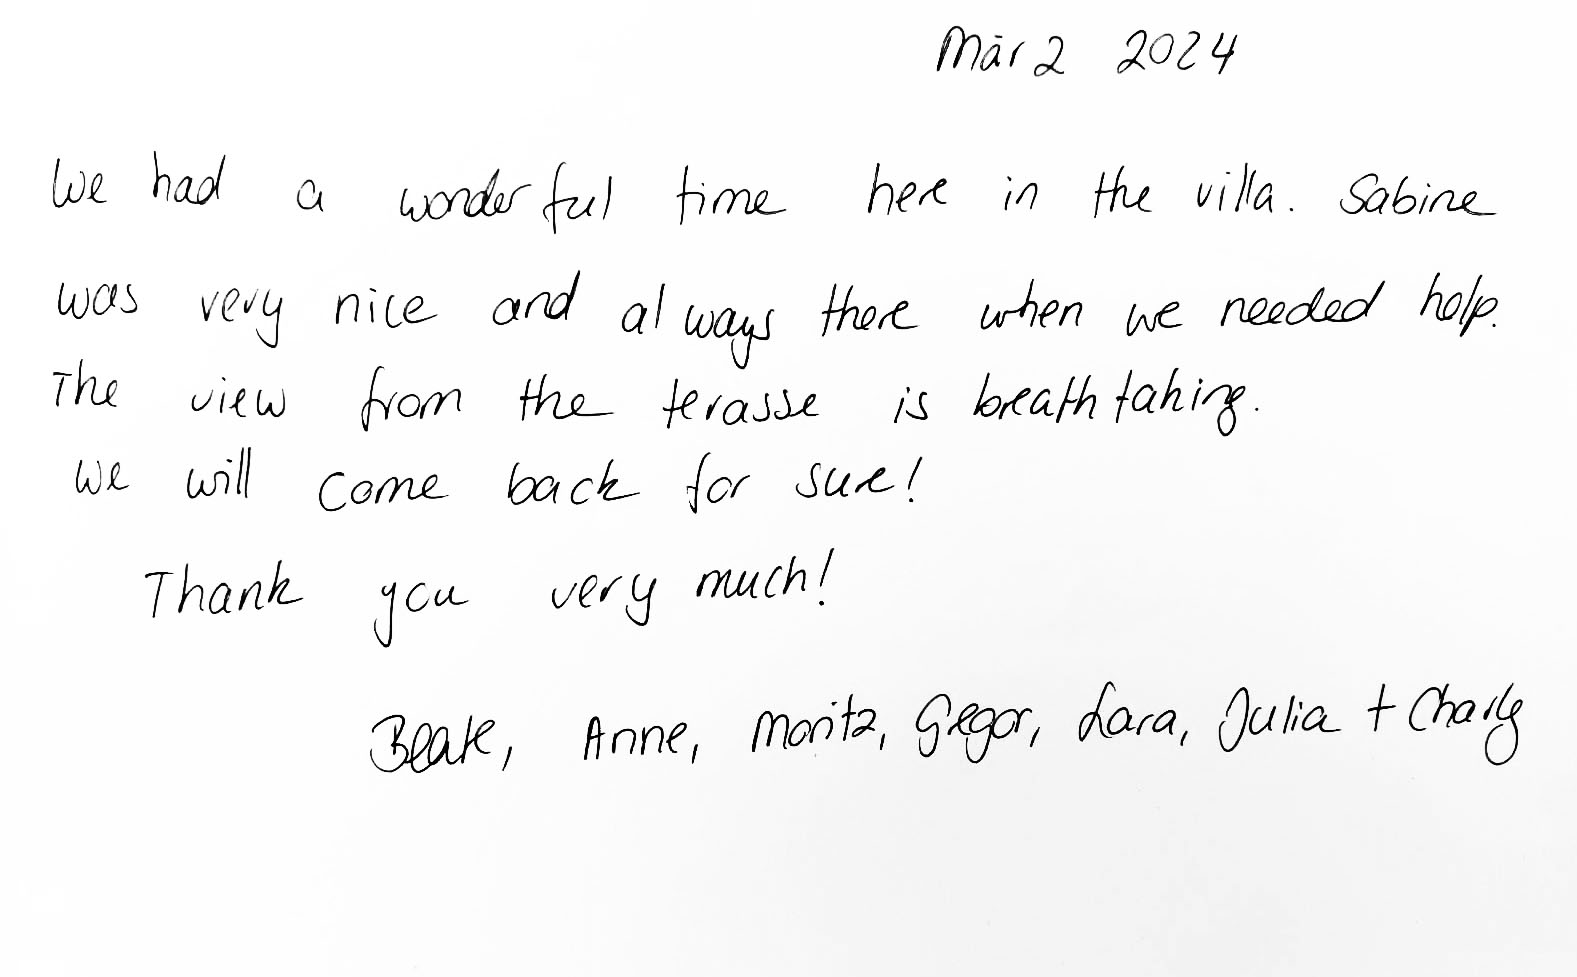 März 2024
We had a wonderful time here in the villa. Sabine
was very nice and always there when we needed help.
The view from the terasse is breathtaking.
We will come back for sure!
Thank you very much!
Beate, Anne, Moritz, Gregor, Lara, Julia + Charly